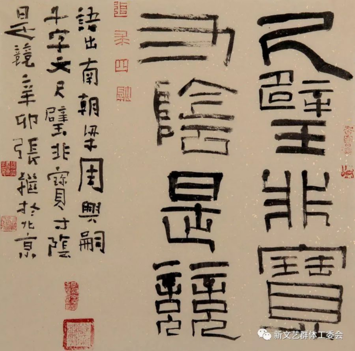 尺璧非寶
寸陰是競
語出南朝梁周興嗣
千字文尺璧非寶寸陰
是競辛卯張繼於北京
新文艺群体工委会